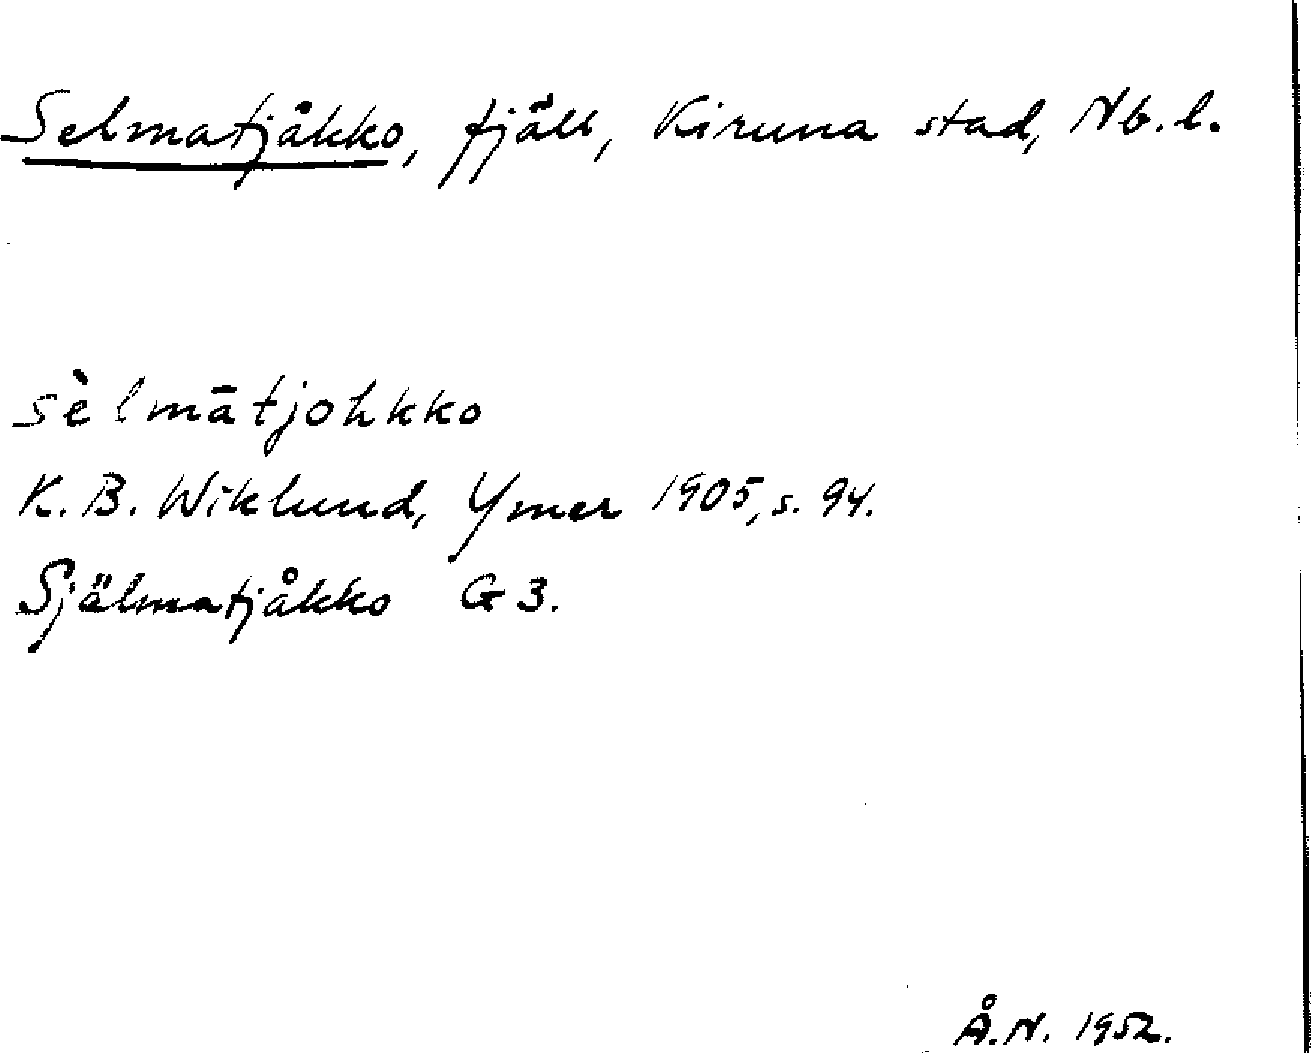 Selmatjåkko, fjäll, Kiruna stad, Nb. l.
sèlmātjohkko
K. B. Wiklund, Ymer 1905, s. 94.
Själmatjåkko G 3.
Å. N. 1952.